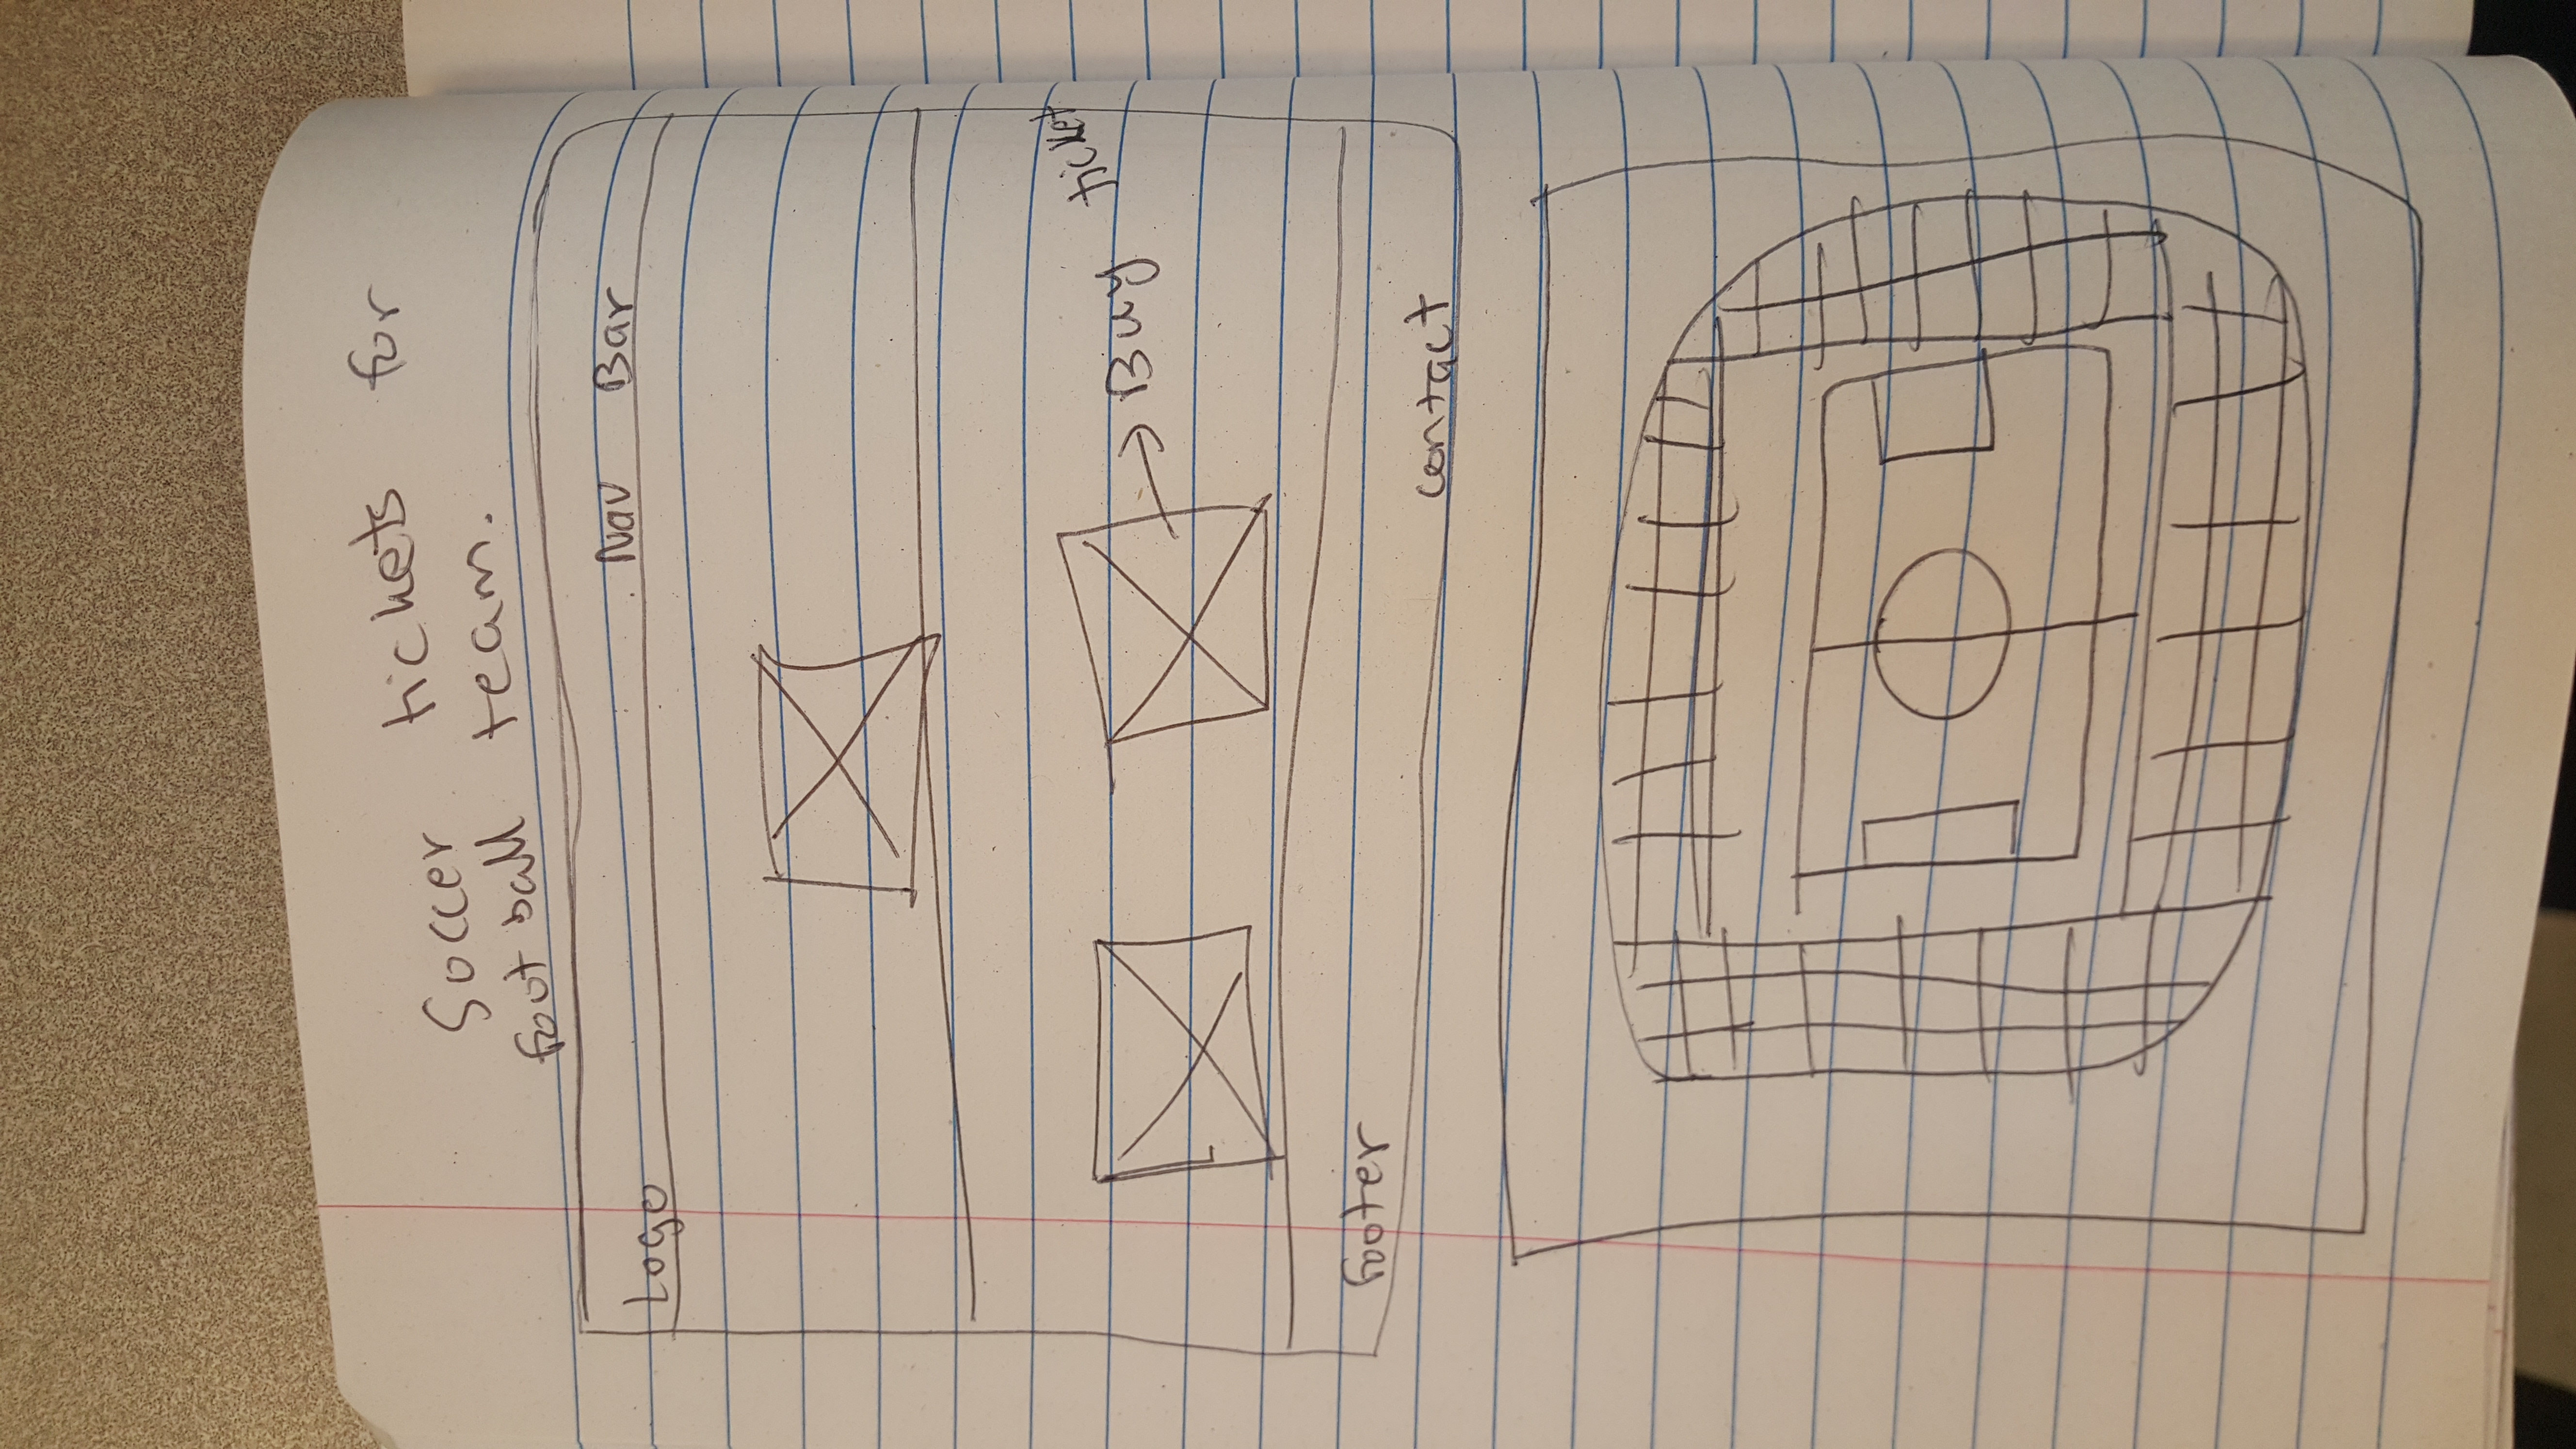 Soccer tickets for
football team.
Logo Nav Bar
Buy ticket
Footer
contact